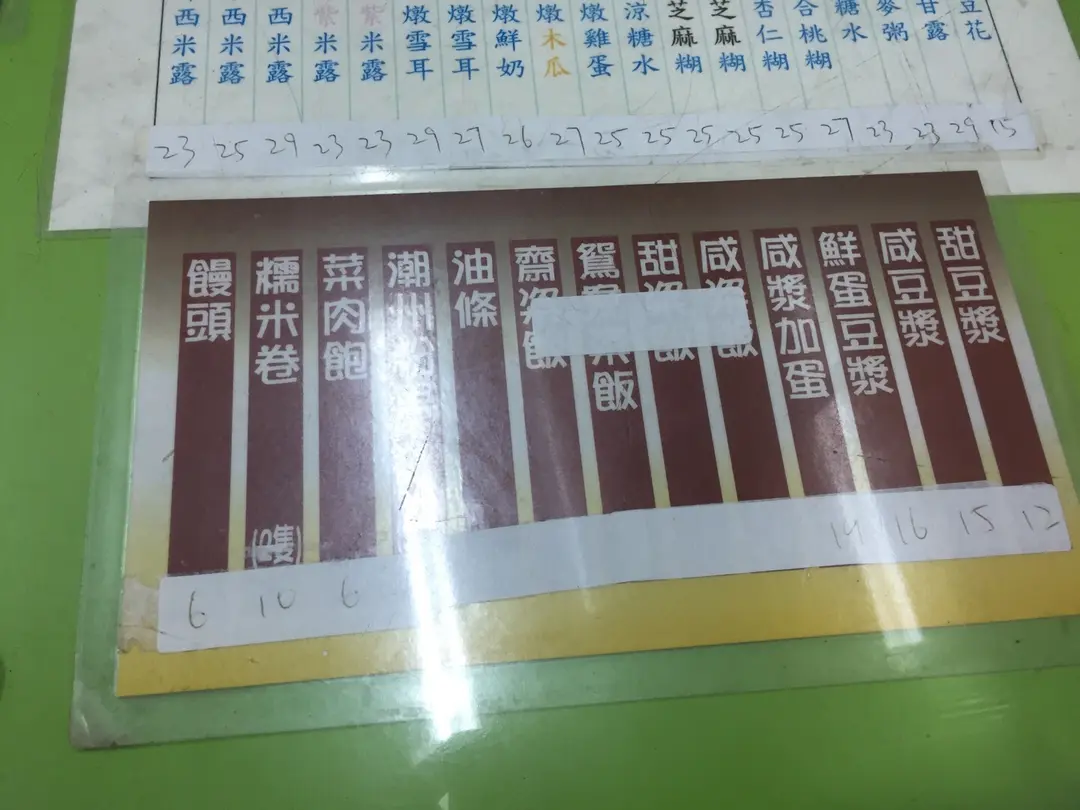 豆花
甘露
麥粥
糖水
合桃糊
杏仁糊
芝麻糊
芝麻糊
涼糖水
燉雞蛋
燉木瓜
燉鮮奶
燉雪耳
燉雪耳
紫米露
紫米露
西米露
西米露
西米露
23 25 29 23 23 29 27 26 27 25 25 25 25 25 27 23 23 29 15
甜豆漿
咸豆漿
鮮蛋豆漿
咸漿加蛋
咸飯
甜飯
鴛飯
齋飯
油條
潮州粉
菜肉飽
糯米卷(2隻)
饅頭
6 10 6 14 16 15 12